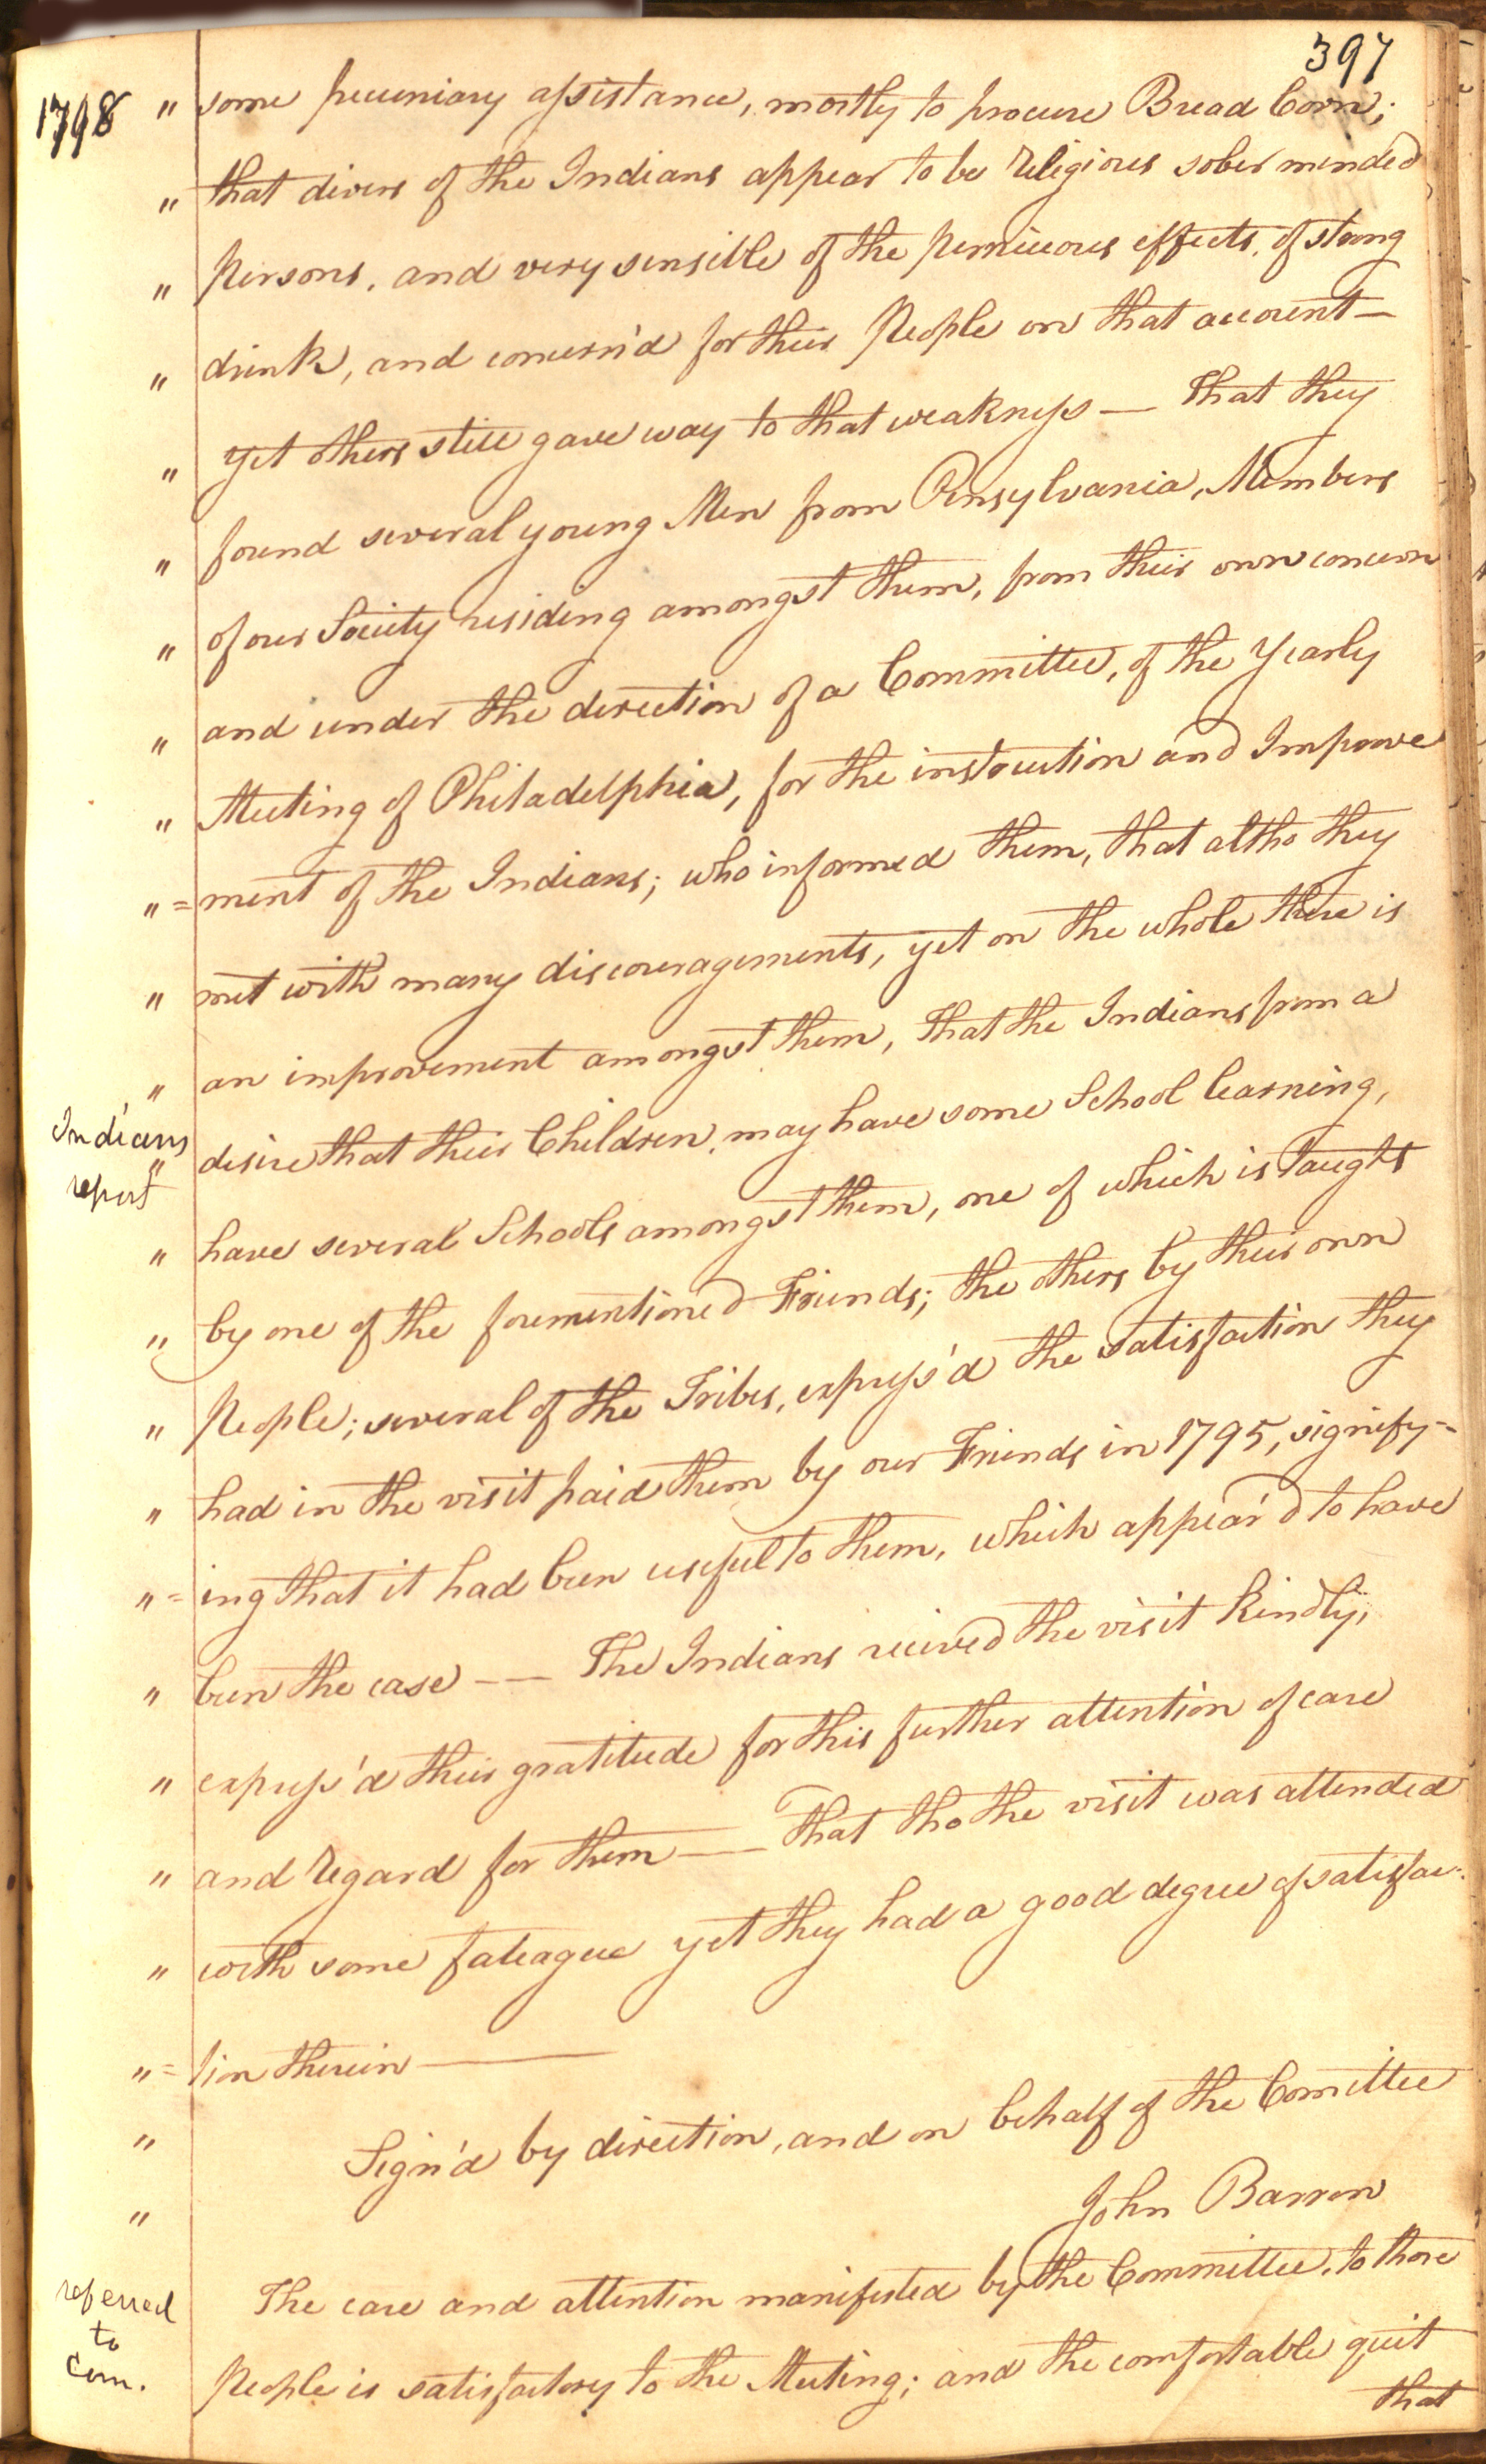 397
1798 " some pecuniary assistance, mostly to procure Bread Corn;
" that divers of the Indians appear to be religious sober minded
" Persons, and very sensible of the pernicious effects, of strong
" drink, and concern'd for their People on that account —
" yet others still gave way to that weakness — That they
" found several young Men from Pensylvania, Members
" of our Society residing amongst them, from their own concern
" and under the direction of a Committee, of the Yearly
" Meeting of Philadelphia, for the instruction and Improve
" = ment of the Indians; who informed them, that altho they
" met with many discouragements, yet on the whole there is
" an improvement amongst them, That the Indians from a
Indians
report
" desire that their Children, may have some School learning,
" have several Schools amongst them, one of which is taught
" by one of the forementioned Friends; the others by their own
" People; several of the Tribes, express'd the satisfaction they
" had in the visit paid them by our Friends in 1795, signify=
" = ing that it had been useful to them, which appear'd to have
" been the case — — The Indians received the visit kindly,
" express'd their gratitude for this further attention of care
" and regard for them — That tho the visit was attended
" with some fateague yet they had a good degree of satisfac-
" = tion therein —
" Sign'd by direction, and on behalf of the Comittee
" John Barrow
referred
to
Com.
The care and attention manifested by the Committee, to those
People is satisfactory to the Meeting; and the comfortable quit
that